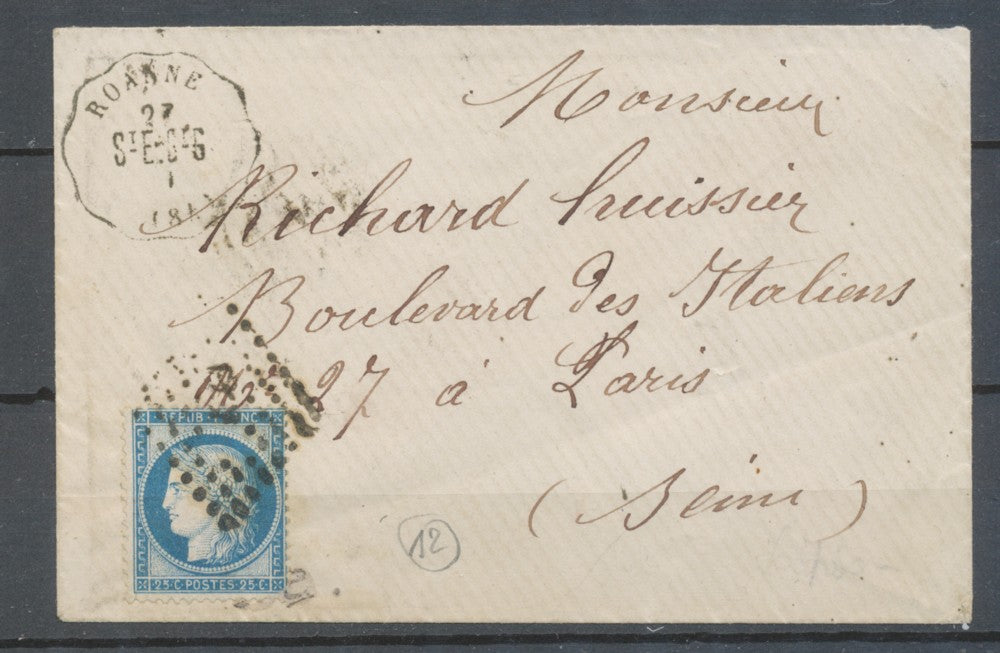 ROANNE
27
1
(81)
Monsieur
Richard huissier
Boulevard des Italiens
Nº 27 à Paris
(Seine)
REPUB FRANC
25·C POSTES·25·C
12